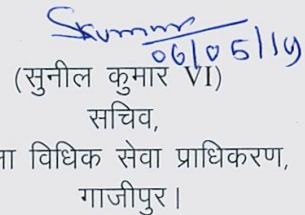 Skumar
06/05/19
(सुनील कुमार VI)
सचिव,
ा विधिक सेवा प्राधिकरण,
गाजीपुर।